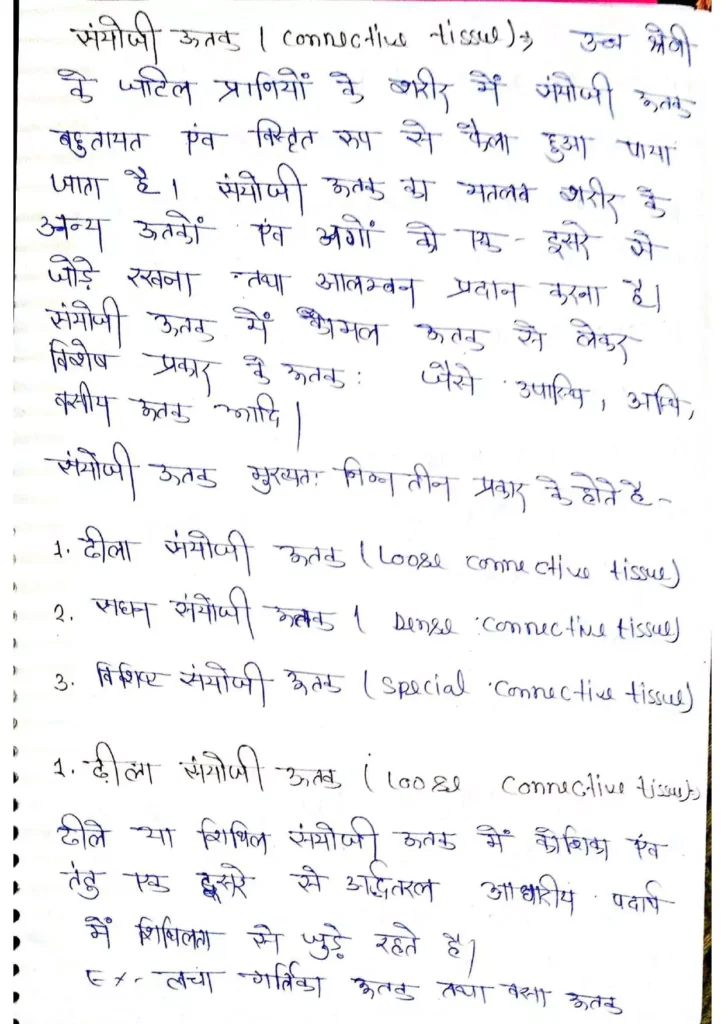 संयोजी ऊतक (connective tissue)→ उच्च श्रेणी
के जटिल प्राणियों के शरीर में संयोजी ऊतक
बहुतायत एंव विस्तृत रूप से फैला हुआ पाया
जाता है। संयोजी ऊतक का मतलब शरीर के
अन्य ऊतकों एंव अंगों को एक - दूसरे से
जोड़े रखना तथा आलम्बन प्रदान करना है।
संयोजी ऊतक में कोमल ऊतक से लेकर
विशेष प्रकार के ऊतक : जैसे उपास्थि, अस्थि,
वसीय ऊतक आदि।
संयोजी ऊतक मुख्यतः निम्न तीन प्रकार के होते है -
1. ढीला संयोजी ऊतक (Loose connective tissue)
2. सघन संयोजी ऊतक ( Dense connective tissue)
3. विशिष्ट संयोजी ऊतक (special connective tissue)
1. ढ़ीला संयोजी ऊतक (Loose connective tissue)→
ढीले या शिथिल संयोजी ऊतक में कोशिका एंव
तंतु एक दूसरे से अर्द्धतरल आधारीय पदार्थ
में शिथिलता से जुड़े रहते है।
Ex- त्वचा गर्तिका ऊतक तथा वसा ऊतक